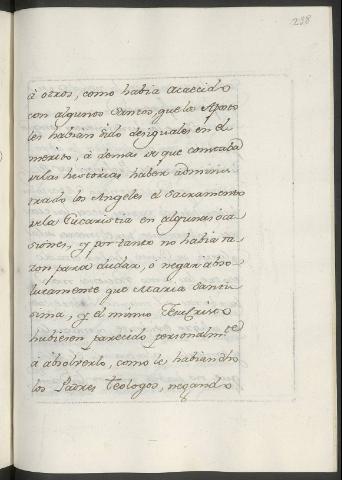 238
à otros, como habia acaecido
con algunos Santos, que los Aposto
les habian sido desiguales en el
merito, à demas de que constaba
de las historias haber adminis
trado los Angeles el Sacramento
de la Eucaristia en algunas oca
siones, y por tanto no habia ra
zon para dudar, ò negar abso
lutamente que Maria Santi
sima, y el mismo JesuCristo
hubiesen parecido personalm.te
à absolverlo, como le habian dho
los Padres Teologos, negando